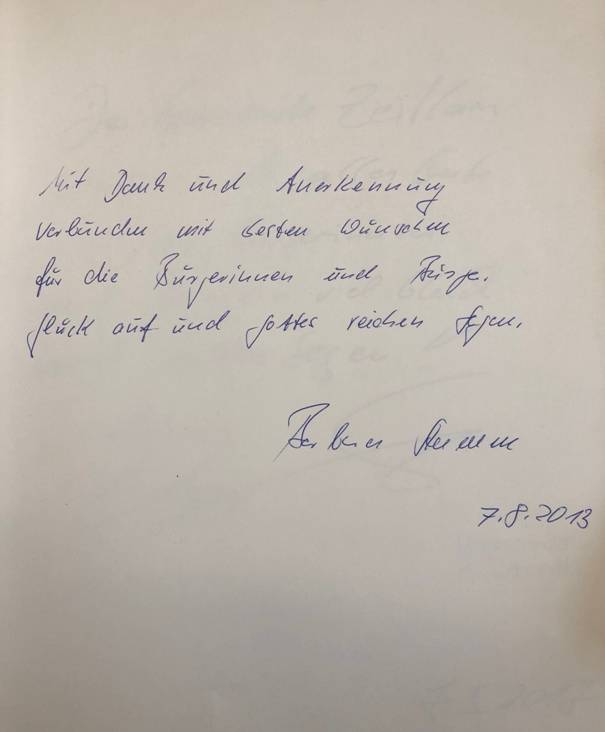 Mit Dank und Anerkennung
verbunden mit besten Wünschen
für die Bürgerinnen und Bürger.
Glück auf und Gottes reichen Segen.
Barbara Stamm
7.8.2013